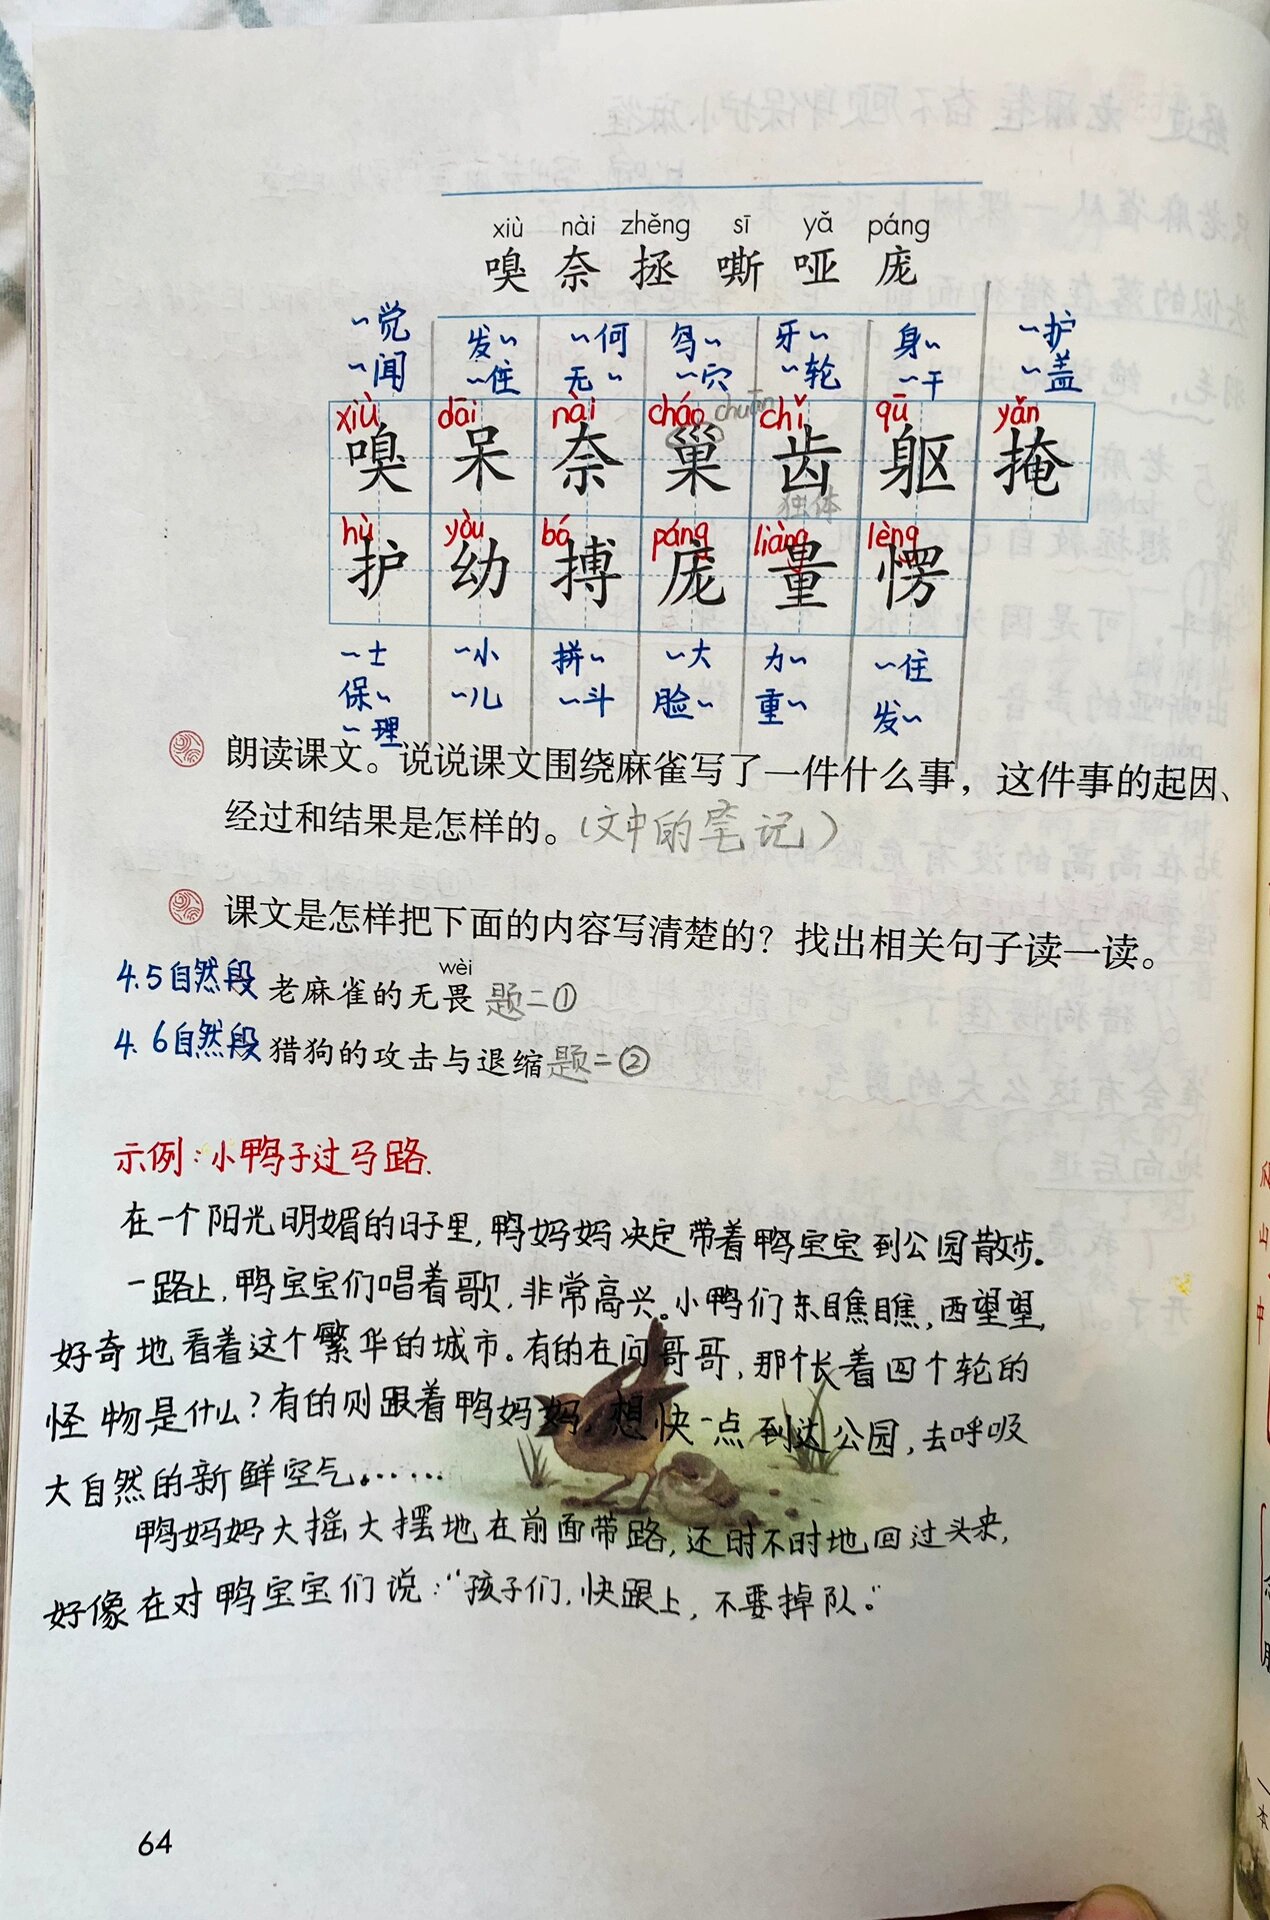 xiù nài zhěng sī yǎ páng
嗅 奈 拯 嘶 哑 庞
~觉 发~ ~何 鸟~ 牙~ 身~ ~护
~闻 ~住 无~ ~穴 ~轮 ~干 ~盖
xiù dāi nài cháo chuān chǐ qū yǎn
嗅 呆 奈 巢 齿 躯 掩
独体
hù yòu bó páng liàng lèng
护 幼 搏 庞 量 愣
~士 ~小 拼~ ~大 力~ ~住
保~ ~儿 ~斗 脸~ 重~ 发~
~理
朗读课文。说说课文围绕麻雀写了一件什么事，这件事的起因、
经过和结果是怎样的。（文中的笔记）
课文是怎样把下面的内容写清楚的？找出相关句子读一读。
wèi
4.5自然段 老麻雀的无畏 题二①
4.6自然段 猎狗的攻击与退缩 题二②
示例：小鸭子过马路.
在一个阳光明媚的日子里，鸭妈妈决定带着鸭宝宝到公园散步。
一路上，鸭宝宝们唱着歌，非常高兴。小鸭们东瞧瞧，西望望，
好奇地看着这个繁华的城市。有的在问哥哥，那个长着四个轮的
怪物是什么？有的则跟着鸭妈妈，想快一点到达公园，去呼吸
大自然的新鲜空气。……
鸭妈妈大摇大摆地在前面带路，还时不时地回过头来，
好像在对鸭宝宝们说：“孩子们，快跟上，不要掉队。”
64